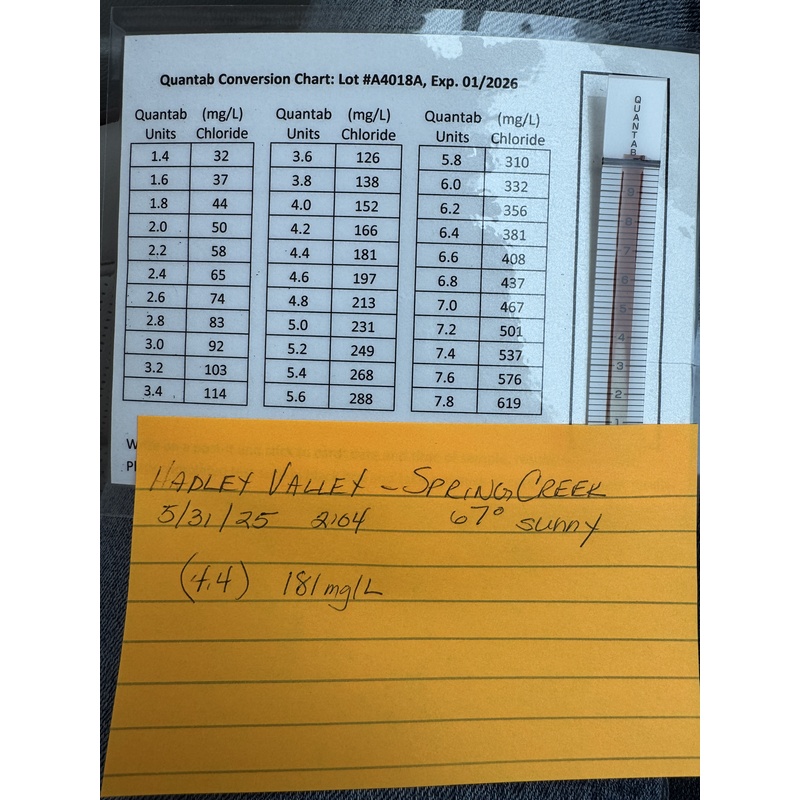 Quantab Conversion Chart: Lot #A4018A, Exp. 01/2026
Quantab Units (mg/L) Chloride Quantab Units (mg/L) Chloride Quantab Units (mg/L) Chloride
1.4 32 3.6 126 5.8 310
1.6 37 3.8 138 6.0 332
1.8 44 4.0 152 6.2 356
2.0 50 4.2 166 6.4 381
2.2 58 4.4 181 6.6 408
2.4 65 4.6 197 6.8 437
2.6 74 4.8 213 7.0 467
2.8 83 5.0 231 7.2 501
3.0 92 5.2 249 7.4 537
3.2 103 5.4 268 7.6 576
3.4 114 5.6 288 7.8 619
QUANTAB
9
8
7
6
5
4
3
2
1
HADLEY VALLEY - SPRING CREEK
5/31/25 2:04 67° sunny
(4.4) 181 mg/L